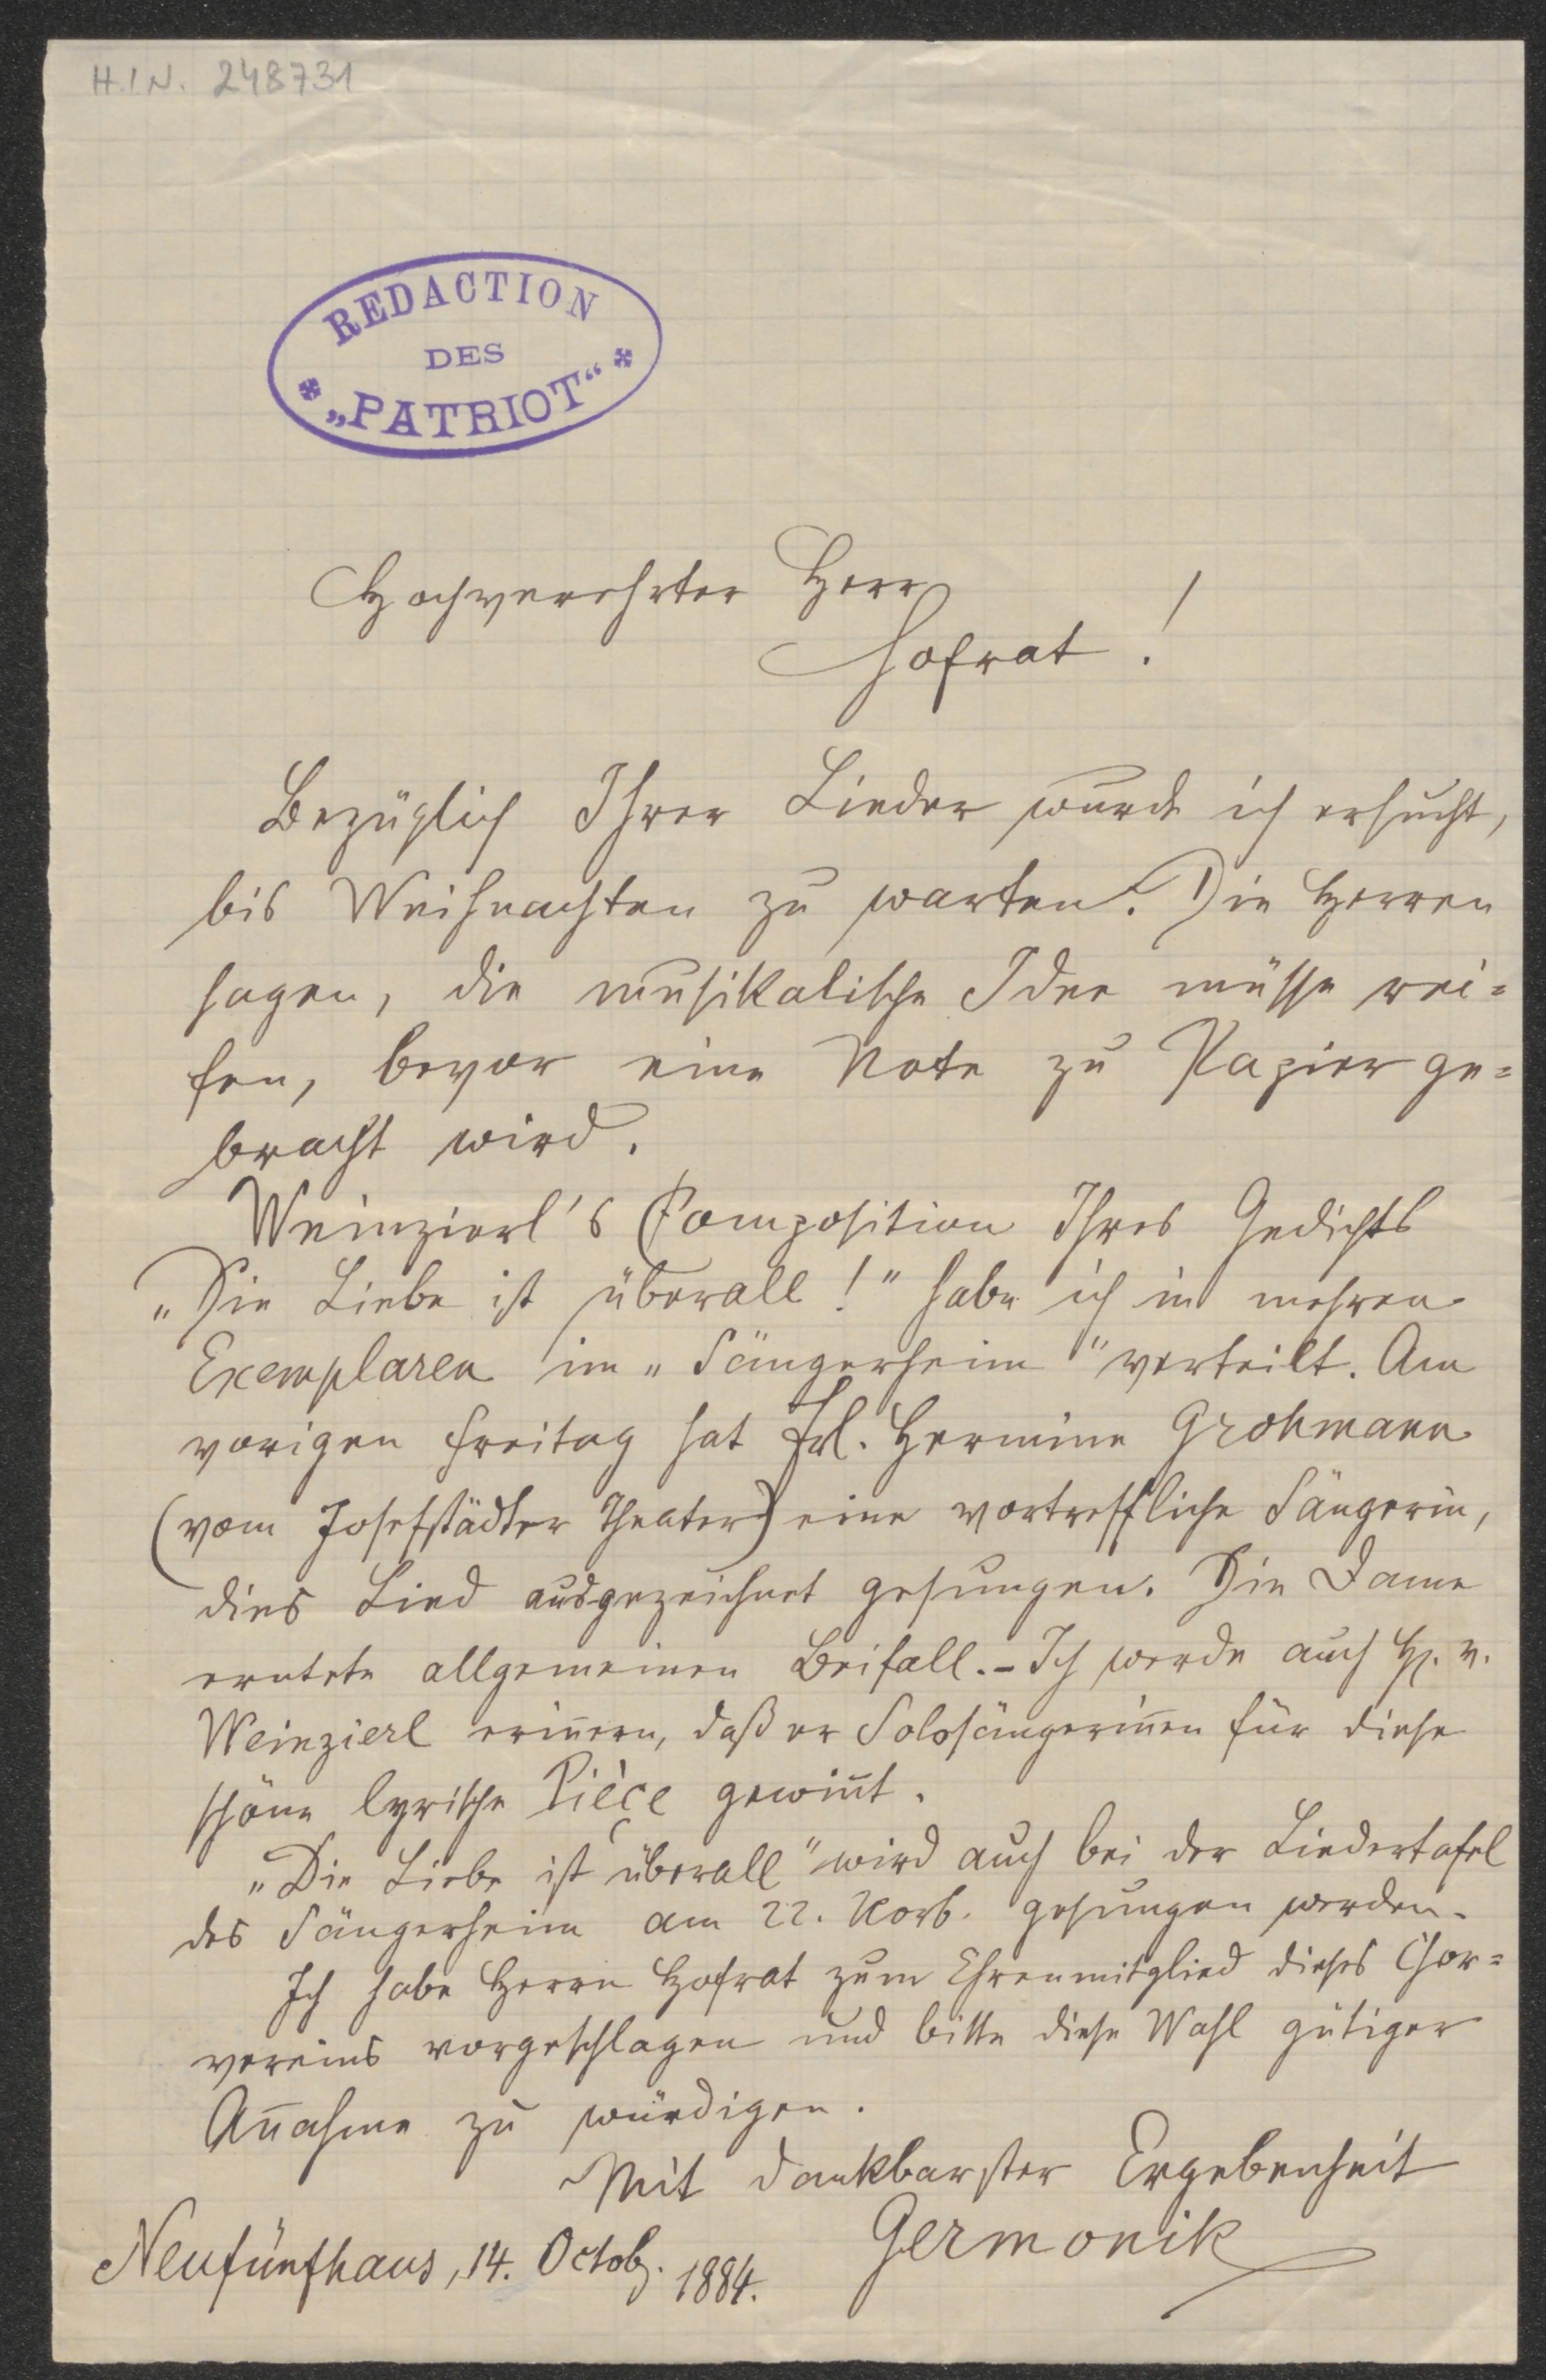 H.I.N. 248731
REDACTION
DES
„PATRIOT“
Hochverehrter Herr
Hofrat!
Bezüglich Ihrer Lieder wurde ich ersucht,
bis Weihnachten zu warten. Die Herren
sagen, die musikalische Idee müsse rei=
fen, bevor eine Note zu Papier ge=
bracht wird.
Weinzierl's Composition Ihres Gedichts
„Die Liebe ist überall!" habe ich in mehren
Exemplaren im „Sängerheim" verteilt. Am
vorigen Freitag hat Frl. Hermine Grohmann
(vom Josefstädter Theater) eine vortreffliche Sängerin,
dies Lied ausgezeichnet gesungen. Die Dame
erntete allgemeinen Beifall. – Ich werde auch H. v.
Weinzierl erin̄ern, daß er Solosängerin̄en für diese
schöne lyrische Pièçe gewin̄t.
„Die Liebe ist überall" wird auch bei der Liedertafel
des Sängerheim am 22. Novb. gesungen werden.
Ich habe Herrn Hofrat zum Ehrenmitglied dieses Chor=
vereins vorgeschlagen und bitte diese Wahl gütiger
An̄ahme zu würdigen.
Mit dankbarster Ergebenheit
Germonik
Neufünfhaus, 14. Octob. 1884.